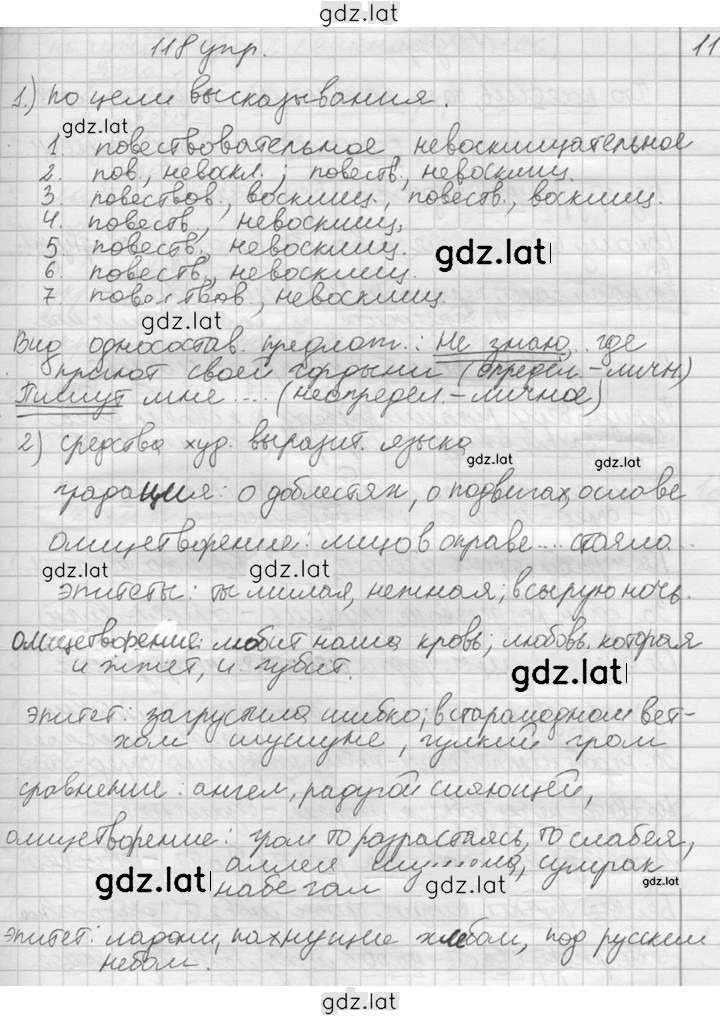 gdz.lat
118 упр.
11
1.) по цели высказывания.
gdz.lat
1. повествовательное невосклицательное
2. пов., невоскл.; повеств., невосклиц.
3. повествов., восклиц., повеств., восклиц.
4. повеств., невосклиц.
5. повеств., невосклиц.
gdz.lat
6. повеств., невосклиц.
7 повествов, невосклиц.
gdz.lat
Вид односостав. предлож.: Не знаю, где
приют своей гордыни (определ-личн)
Пишут мне ... (неопредел-личное)
2) средства худ. выразит. языка
gdz.lat
gdz.lat
градация: о доблестях, о подвигах, о славе
олицетворение: лицо в оправе ... стояло...
gdz.lat
gdz.lat
эпитеты: ты милая, нежная; в сырую ночь.
олицетворение: любит наша кровь; любовь. которая
и жжет, и губит.
gdz.lat
эпитет: загрустила шибко; в старомодном вет-
хом шушуне, гулкий гром
сравнение: ангел, радугой сияющей,
олицетворение: гром то разрастаясь, то слабея,
аллея шумела, сумрак
набегал
gdz.lat
gdz.lat
gdz.lat
эпитет: ладони, пахнущие хлебом, под русским
небом.
gdz.lat